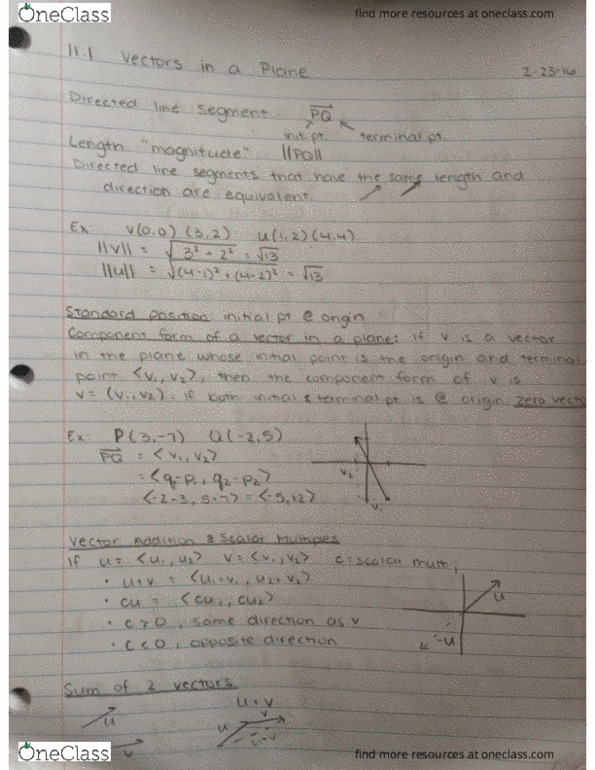 OneClass
find more resources at oneclass.com
11.1 Vectors in a Plane
2-23-16
Directed line segment: PQ
init. pt. terminal pt.
Length "magnitude": ||PQ||
Directed line segments that have the same length and
direction are equivalent.
Ex: v(0,0) (3,2) u(1,2)(4,4)
||v|| = √3²+2² = √13
||u|| = √(4-1)²+(4-2)² = √13
Standard position: initial pt @ origin
Component form of a vector in a plane: if v is a vector
in the plane whose initial point is the origin and terminal
point <v₁,v₂>, then the component form of v is
v = (v₁,v₂). if both initial & terminal pt is @ origin zero vecto
Ex: P(3,-7) Q(-2,5)
PQ = <v₁,v₂>
= <q-p₁, q₂-p₂>
<-2-3, 5+7> = <-5,12>
v₂
v₁
Vector Addition & Scalar Multiples
If u = <u₁,u₂> v = <v₁,v₂> c: scalar mult.,
• u+v = <u₁+v₁, u₂+v₂>
• cu = <cu₁, cu₂>
• c>0, same direction as v
• c<0, opposite direction
u
-u
Sum of 2 vectors
u+v
u
v
u
v
u+v
OneClass
find more resources at oneclass.com